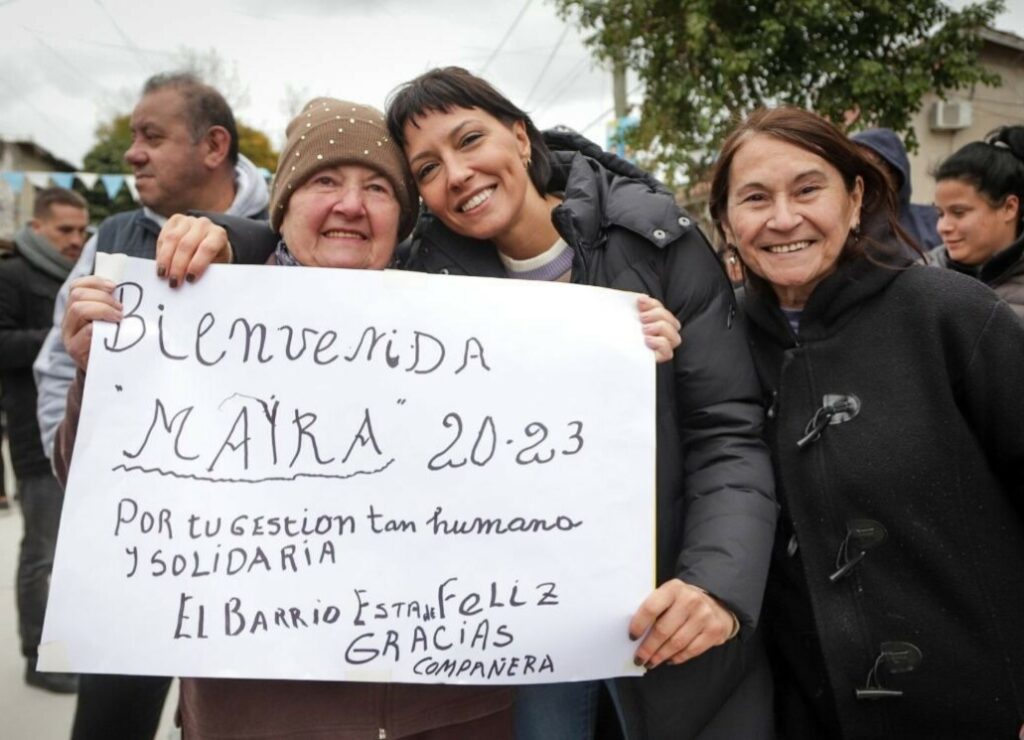 BienveniDA
"MAYRA" 20-23
POR tu GESTION tan humano
Y SOLIDARIA
EL BARRIO ESTA de FELIZ
GRACIAS
COMPAÑERA